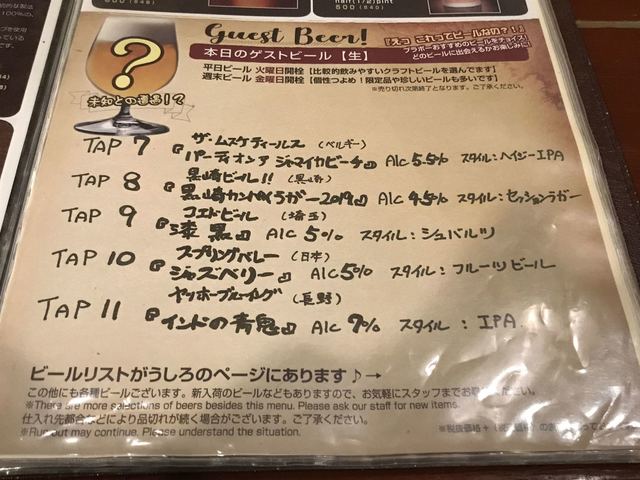 500 (840)
half(1/2)pint
600 (640)
Guest Beer!
本日のゲストビール【生】
『えっ これってビールなの?!』
ブラボーおすすめのビールをチョイス!
どのビールに出会えるかお楽しみに!
平日ビール 火曜日開栓【比較的飲みやすいクラフトビールを選んでます】
週末ビール 金曜日開栓【個性つよめ!限定品や珍しいビールも多いです】
※売り切れ次第終了となります。ご了承ください。
?
未知との遭遇!?
ザ・ムスケティールス (ベルギー)
TAP 7 『パーティオンア ジャマイカビーチ』 Alc 5.5% スタイル:ヘイジーIPA
黒崎ビール!! (黒崎)
TAP 8 『黒崎カントリーラガー2019』 Alc 4.5% スタイル:セッションラガー
コエドビール (埼玉)
TAP 9 『漆黒』 Alc 5% スタイル:シュバルツ
スプリングバレー (日本)
TAP 10 『ジャズベリー』 Alc 5% スタイル:フルーツビール
ヤッホーブルーイング (長野)
TAP 11 『インドの青鬼』 Alc 7% スタイル:IPA
ビールリストがうしろのページにあります♪→
この他にも各種ビールございます。新入荷のビールなどもありますので、お気軽にスタッフまでお
※There are more selections of beers besides this menu. Please ask our staff for new items.
仕入れ先都合などにより品切れが続く場合がございます。ご了承ください。
※Run out may continue. Please understand the situation.
※税抜価格+